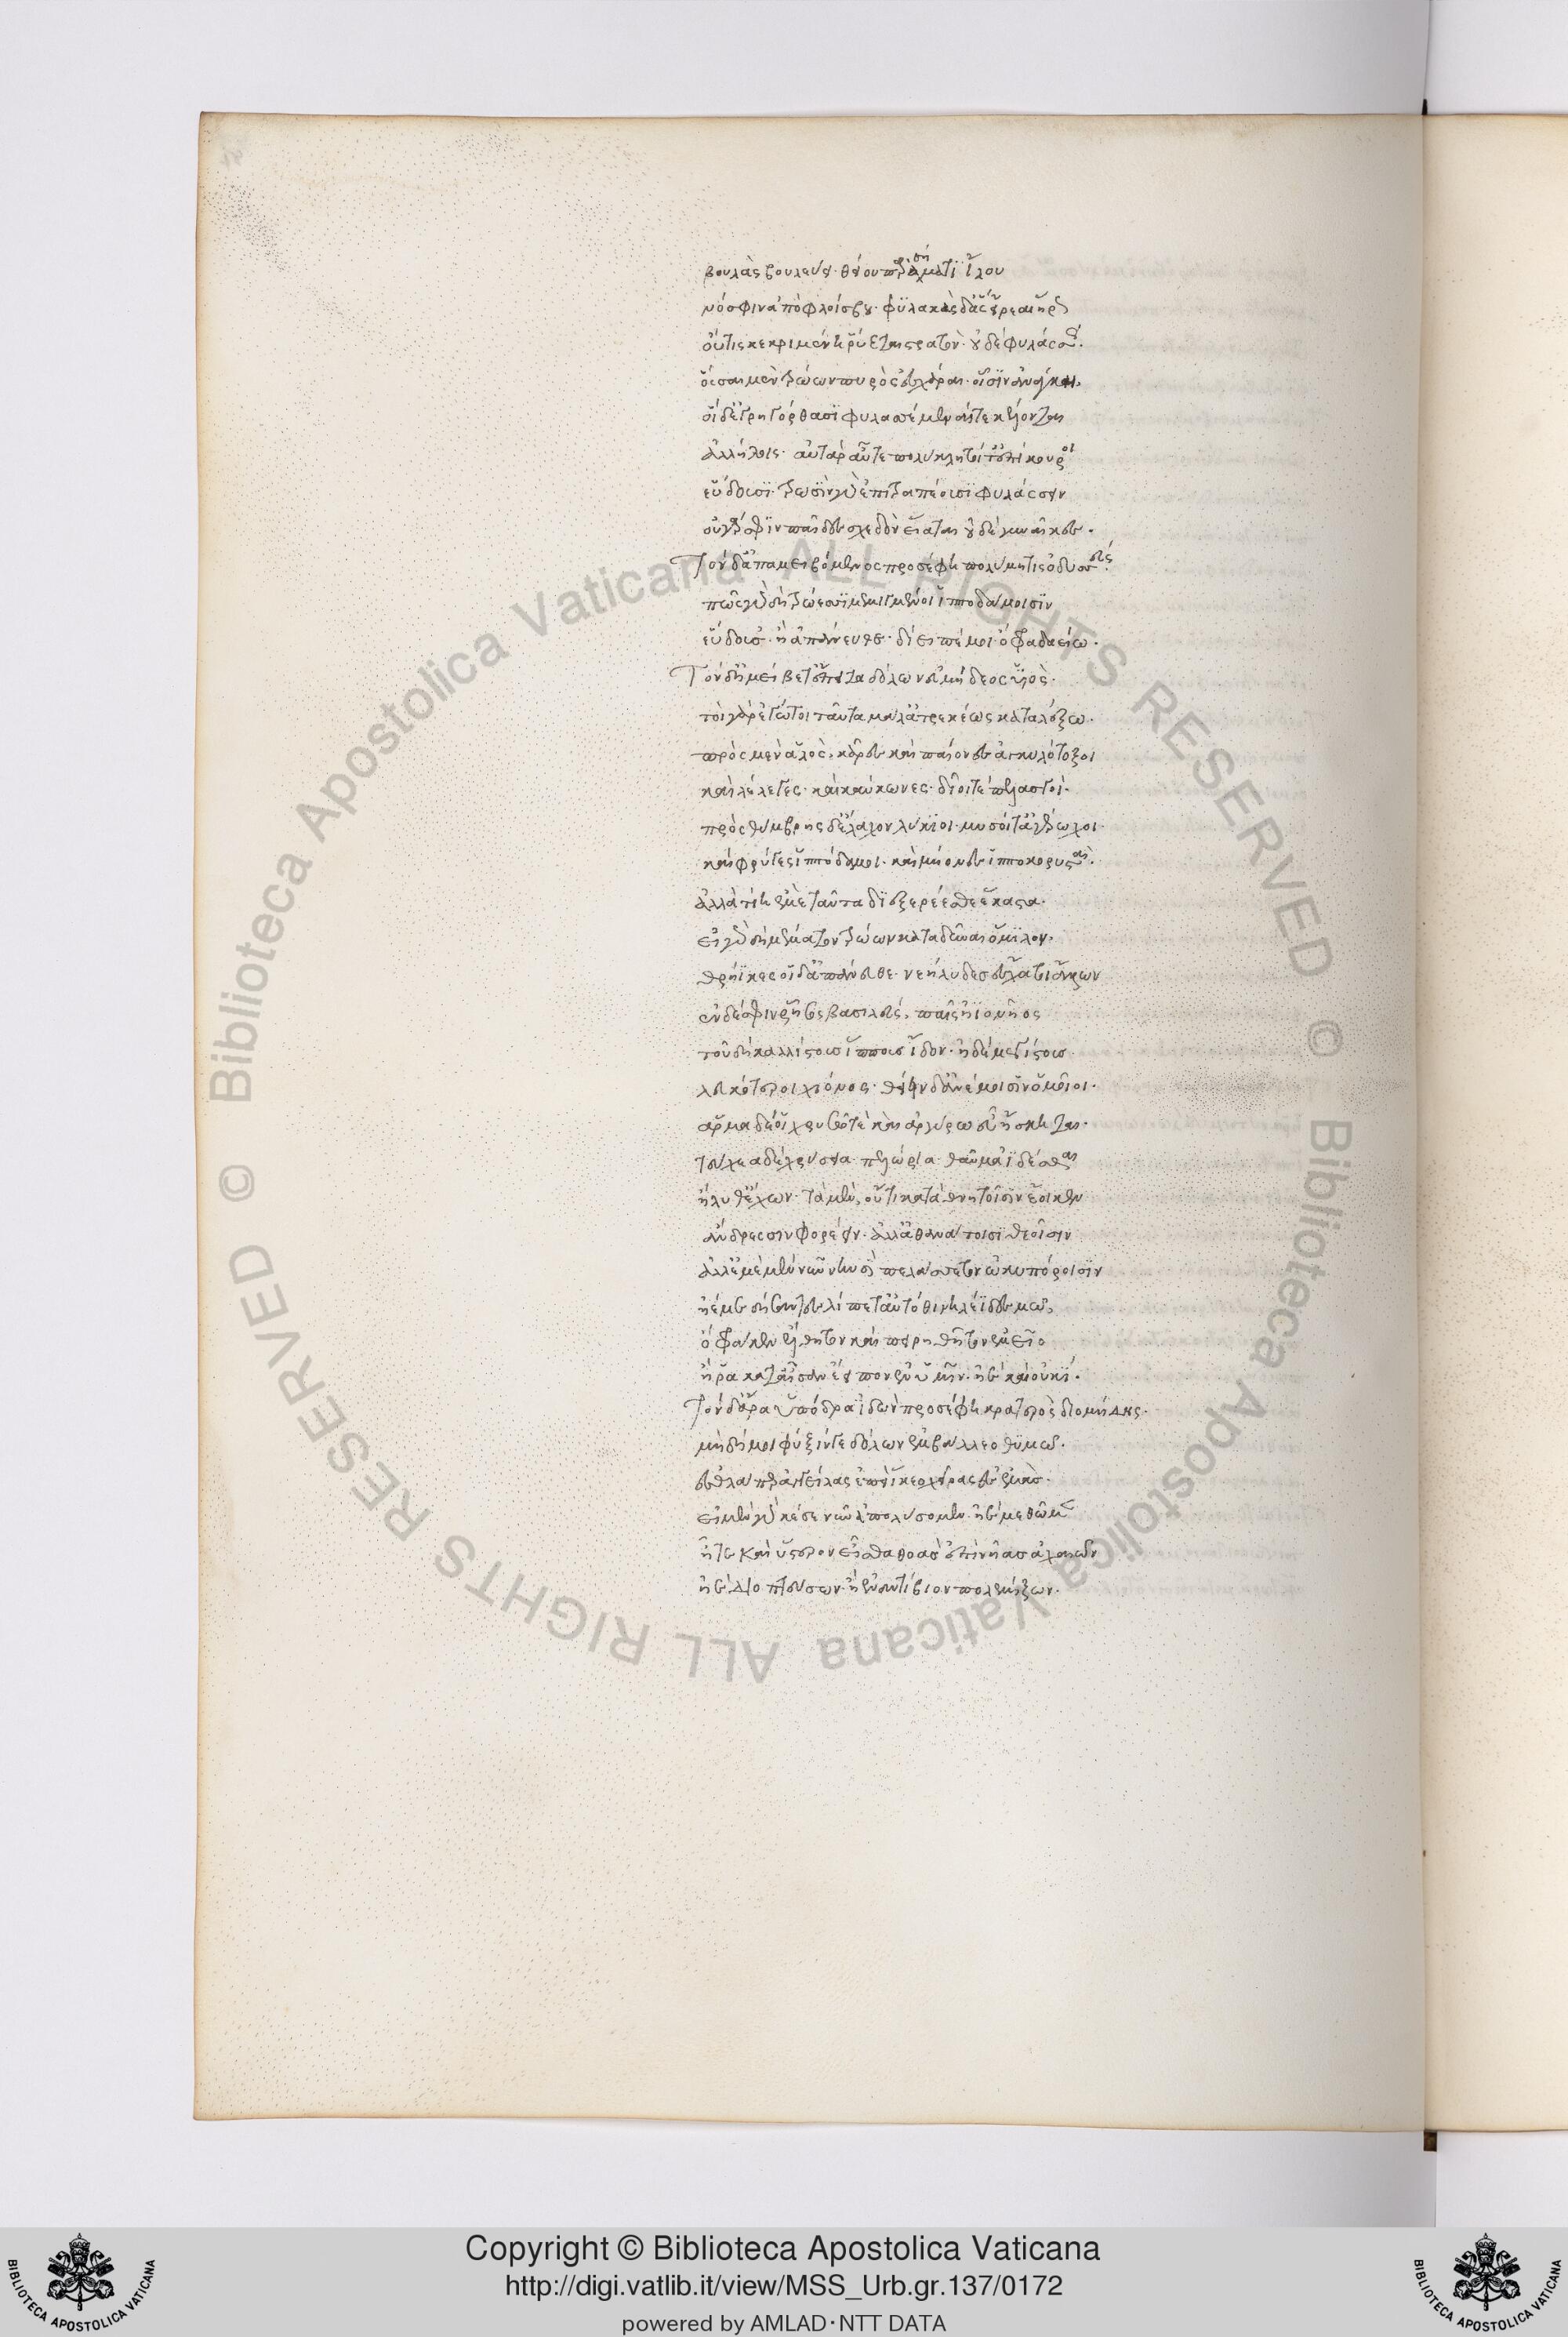 βουλὰς βουλεύει· θείου παρὰ σήματι ἴλου
νόσφιν ἀπὸ φλοίσβου· φϋλακὰς δ' ἃς εἴρεαι ἥρως
οὔτις κεκριμένη ῥύεται στρατὸν· οὐδὲ φυλάσσει.
ὅσσαι μὲν τρώων πυρὸς ἐσχάραι· οἷσϊν ἀνάγκη,
οἵδ' ἐγρηγόρθασϊ φυλασσέμεναί τε κέλονται
ἀλλήλοις· αὐτὰρ αὖτε πολύκλητοί τ' ἐπίκουροι
εὕδουσϊ· τρωσὶν γὰρ ἐπιτραπέουσϊ φυλάσσειν
οὐ γάρ σφϊν παῖδες σχεδὸν εἵαται οὐδὲ γυναῖκες.
Τὸν δ' ἀπαμειβόμενος προσέφη πολύμητις ὀδυσσεύς.
πῶς γὰρ δὴ τρώεσσϊ μεμιγμένοι ἱπποδάμοισϊν
εὕδουσ'· ἢ ἀπάνευθε· δίειπέ μοι· ὄφρα δαείω.
Τὸν δ' ἠμείβετ' ἔπειτα δόλων εὐμήδεος ϋἱὸς.
τοὶ γὰρ ἐγώ τοι ταῦτα μάλ' ἀτρεκέως καταλέξω.
πρὸς μὲν ἁλὸς, κᾶρες καὶ παίονες ἀγκυλότοξοι
καὶ λέλεγες· καὶ καύκωνες· δῖοί τε πελασγοί.
πρὸς θύμβρης δ' ἔλαχον λύκϊοι· μυσοί τ' ἀγέρωχοι·
καὶ φρύγες ἱππόδαμοι· καὶ μήονες ἱπποκορυσταὶ.
ἀλλὰ τίη ἐμὲ ταῦτα δϊεξερέεσθε ἕκαστα.
εἰ γὰρ δὴ μέματον τρώων καταδῦναι ὅμϊλον,
θρήϊκες οἵδ' ἀπάνευθε· νεήλυδες ἔσχατοι ἄλλων
ἐν δέ σφιν ῥῆσος βασιλεύς, παῖς ἠϊονῆος
τοῦ δὴ καλλίστους ἵππους ἴδον· ἠδὲ μεγίστους
λευκότεροι χιόνος· θείειν δ' ἀνέμοισϊν ὅμοῖοι.
ἅρμα δέ οἱ χρυσῶ τὲ καὶ ἀργύρω εὖ ἤσκηται.
τεύχεα δὲ χρύσεια· πελώρια· θαῦμα ἰδέσθαι
ἤλυθ' ἔχων· τὰ μὲν, οὔτι κατὰ θνητοῖσϊν ἔοικεν
ἄνδρεσσιν φορέειν· ἀλλ' ἀθανάτοισϊ θεοῖσιν
ἀλλ' ἐμὲ μὲν νῦν νηυσὶ πελάσσετον ὠκυπόροισϊν
ἠέ με δήσαντες λίπετ' αὐτόθι νηλέϊ δεσμῶ,
ὄφρα κεν ἔλθητον καὶ πειρηθῆτον ἐμεῖο
ἤ ῥα κατ' αἶσαν ἔειπον ἐν ὑμῖν· ἠὲ καὶ οὐκΐ.
Τὸν δ' ἄρ' ὑπόδρα ἰδὼν προσέφη κρατερὸς διομήδης·
μὴ δή μοι φύξίν γε δόλων ἐμβάλλεο θϋμῶ.
ἐσθλά περ ἀγγείλας ἐπεὶ ἵκεο χεῖρας ἐς ἐμὰς.
εἰ μὲν γάρ κέ σε νῦν ἀπολύσομεν· ἠὲ μεθῶμεν
ἦ τε καὶ ὕστερον εἶσθα θοὰς ἐπὶ νῆας ἀχαιῶν
ἠὲ διοπτεύσων· ἢ ἐναντίβιον πολεμίξων.
Copyright © Biblioteca Apostolica Vaticana
http://digi.vatlib.it/view/MSS_Urb.gr.137/0172
powered by AMLAD·NTT DATA